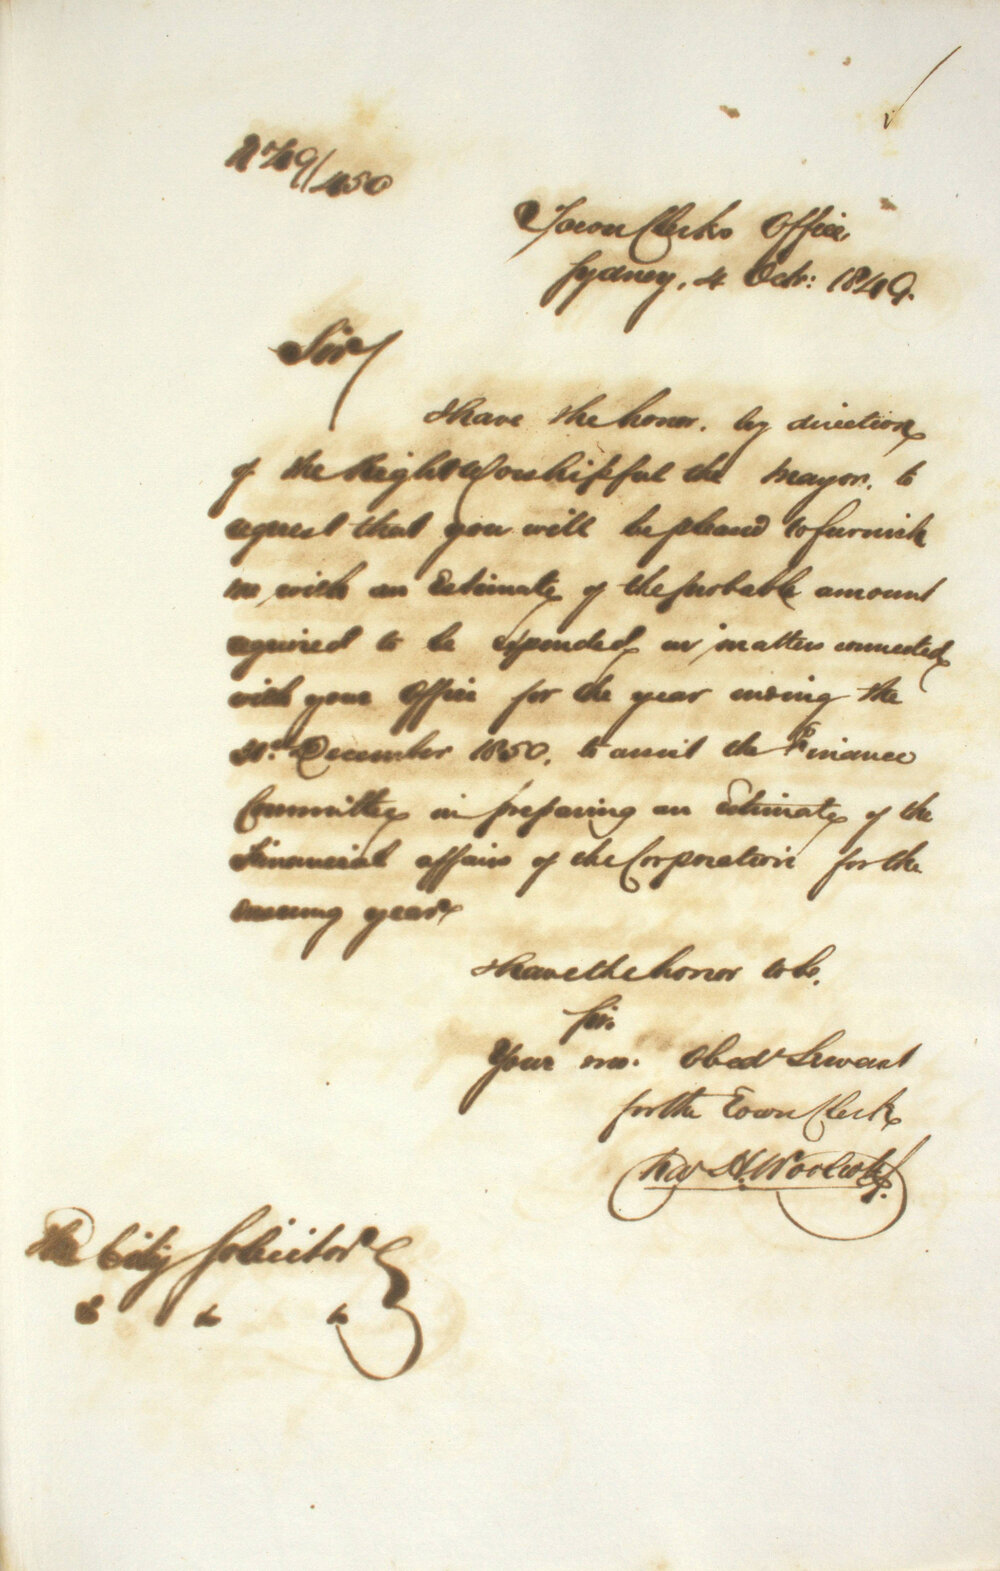 No 49/450
Town Clerks Office,
Sydney, 4 Octr: 1849.
Sir,
I have the honor, by direction
of the Right Worshipful the Mayor, to
request that you will be pleased to furnish
me with an Estimate of the probable amount
required to be expended in matters connected
with your Office for the year ending the
31st December 1850, to assist the Finance
Committee in preparing an estimate of the
Financial affairs of the Corporation for the
ensuing year
I have the honor to be,
Sir,
Your mo: Obedt Servant
for the Town Clerk
H. Woolcott
The City Solicitor
&c &c &c